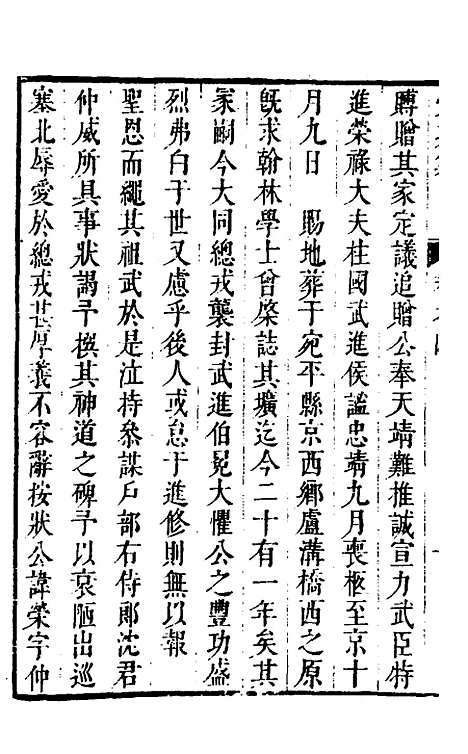 賻贈其家定議追贈公奉天靖難推誠宣力武臣特
進榮祿大夫柱國武進侯諡忠靖九月喪柩至京十
月九日 賜地葬于宛平縣京西鄉盧溝橋西之原
旣求翰林學士曾棨誌其壙迄今二十有一年矣其
冢嗣今大同總戎襲封武進伯冕大懼公之豐功盛
烈弗白于世又慮乎後人或怠于進修則無以報
聖恩而繩其祖武於是泣持叅謀戶部右侍郎沈君
仲威所具事狀謁予撰其神道之碑予以哀陋出巡
塞北辱愛於總戎甚厚義不容辭按狀公諱榮字仲